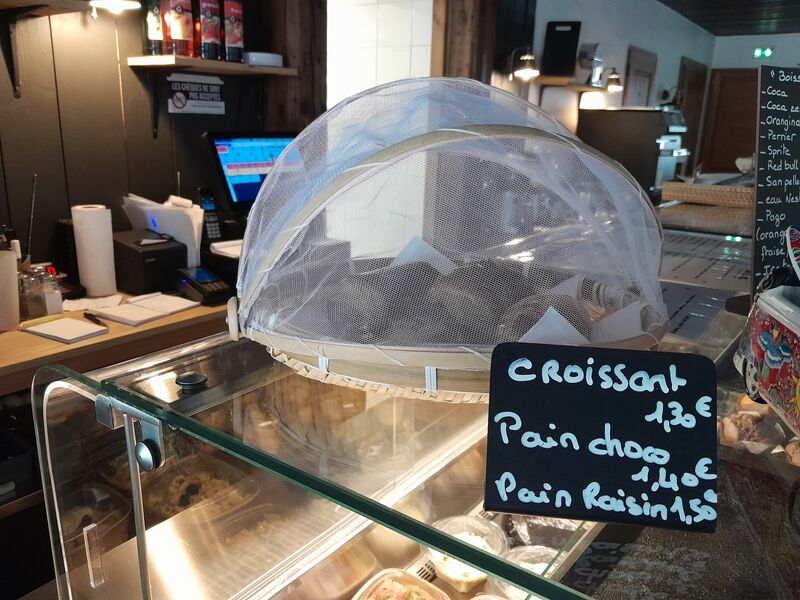 LES CHÈQUES NE SONT
PAS ACCEPTÉS
Boiss
- Coca
- Coca ze
- Orangina
- Perrier
- Sprite
- Red bull
- San pelle
- eau Nes
- Pago
(orang
fraise
CROISSANT
1,30€
Pain choco
1,40€
Pain Raisin 1,50€